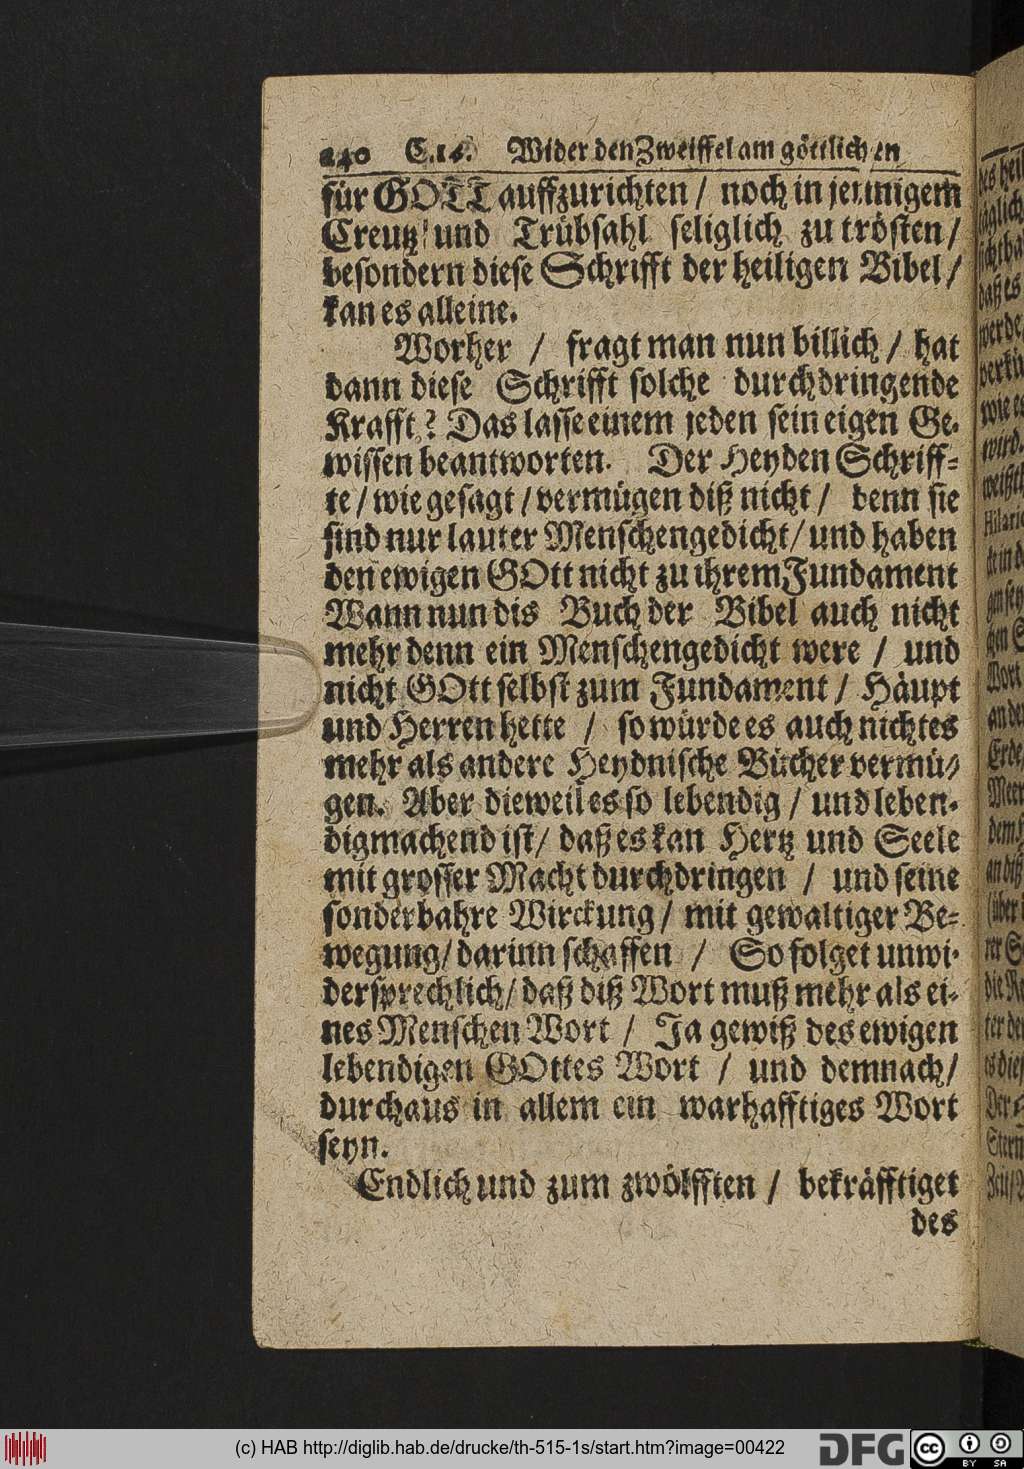 240 C.14. Wider den Zweiffel am göttlichen
für GOTT auffzurichten / noch in jennigem
Creutz und Trübsahl seliglich zu trösten /
besondern diese Schrifft der heiligen Bibel /
kan es alleine.
Worher / fragt man nun billich / hat
dann diese Schrifft solche durchdringende
Krafft? Das lasse einem jeden sein eigen Ge-
wissen beantworten. Der Heyden Schriff-
te / wie gesagt / vermügen diß nicht / denn sie
sind nur lauter Menschengedicht / und haben
den ewigen GOtt nicht zu ihrem Fundament
Wann nun dis Buch der Bibel auch nicht
mehr denn ein Menschengedicht were / und
nicht GOtt selbst zum Fundament / Häupt
und Herren hette / so würde es auch nichtes
mehr als andere Heydnische Bücher vermü-
gen. Aber dieweil es so lebendig / und leben-
digmachend ist / daß es kan Hertz und Seele
mit grosser Macht durchdringen / und seine
sonderbahre Wirckung / mit gewaltiger Be-
wegung / darinn schaffen / So folget unwi-
dersprechlich / daß diß Wort muß mehr als ei-
nes Menschen Wort / Ja gewiß des ewigen
lebendigen GOttes Wort / und demnach /
durchaus in allem ein warhafftiges Wort
seyn.
Endlich und zum zwölfften / bekräfftiget
des
(c) HAB http://diglib.hab.de/drucke/th-515-1s/start.htm?image=00422
DFG
cc BY SA